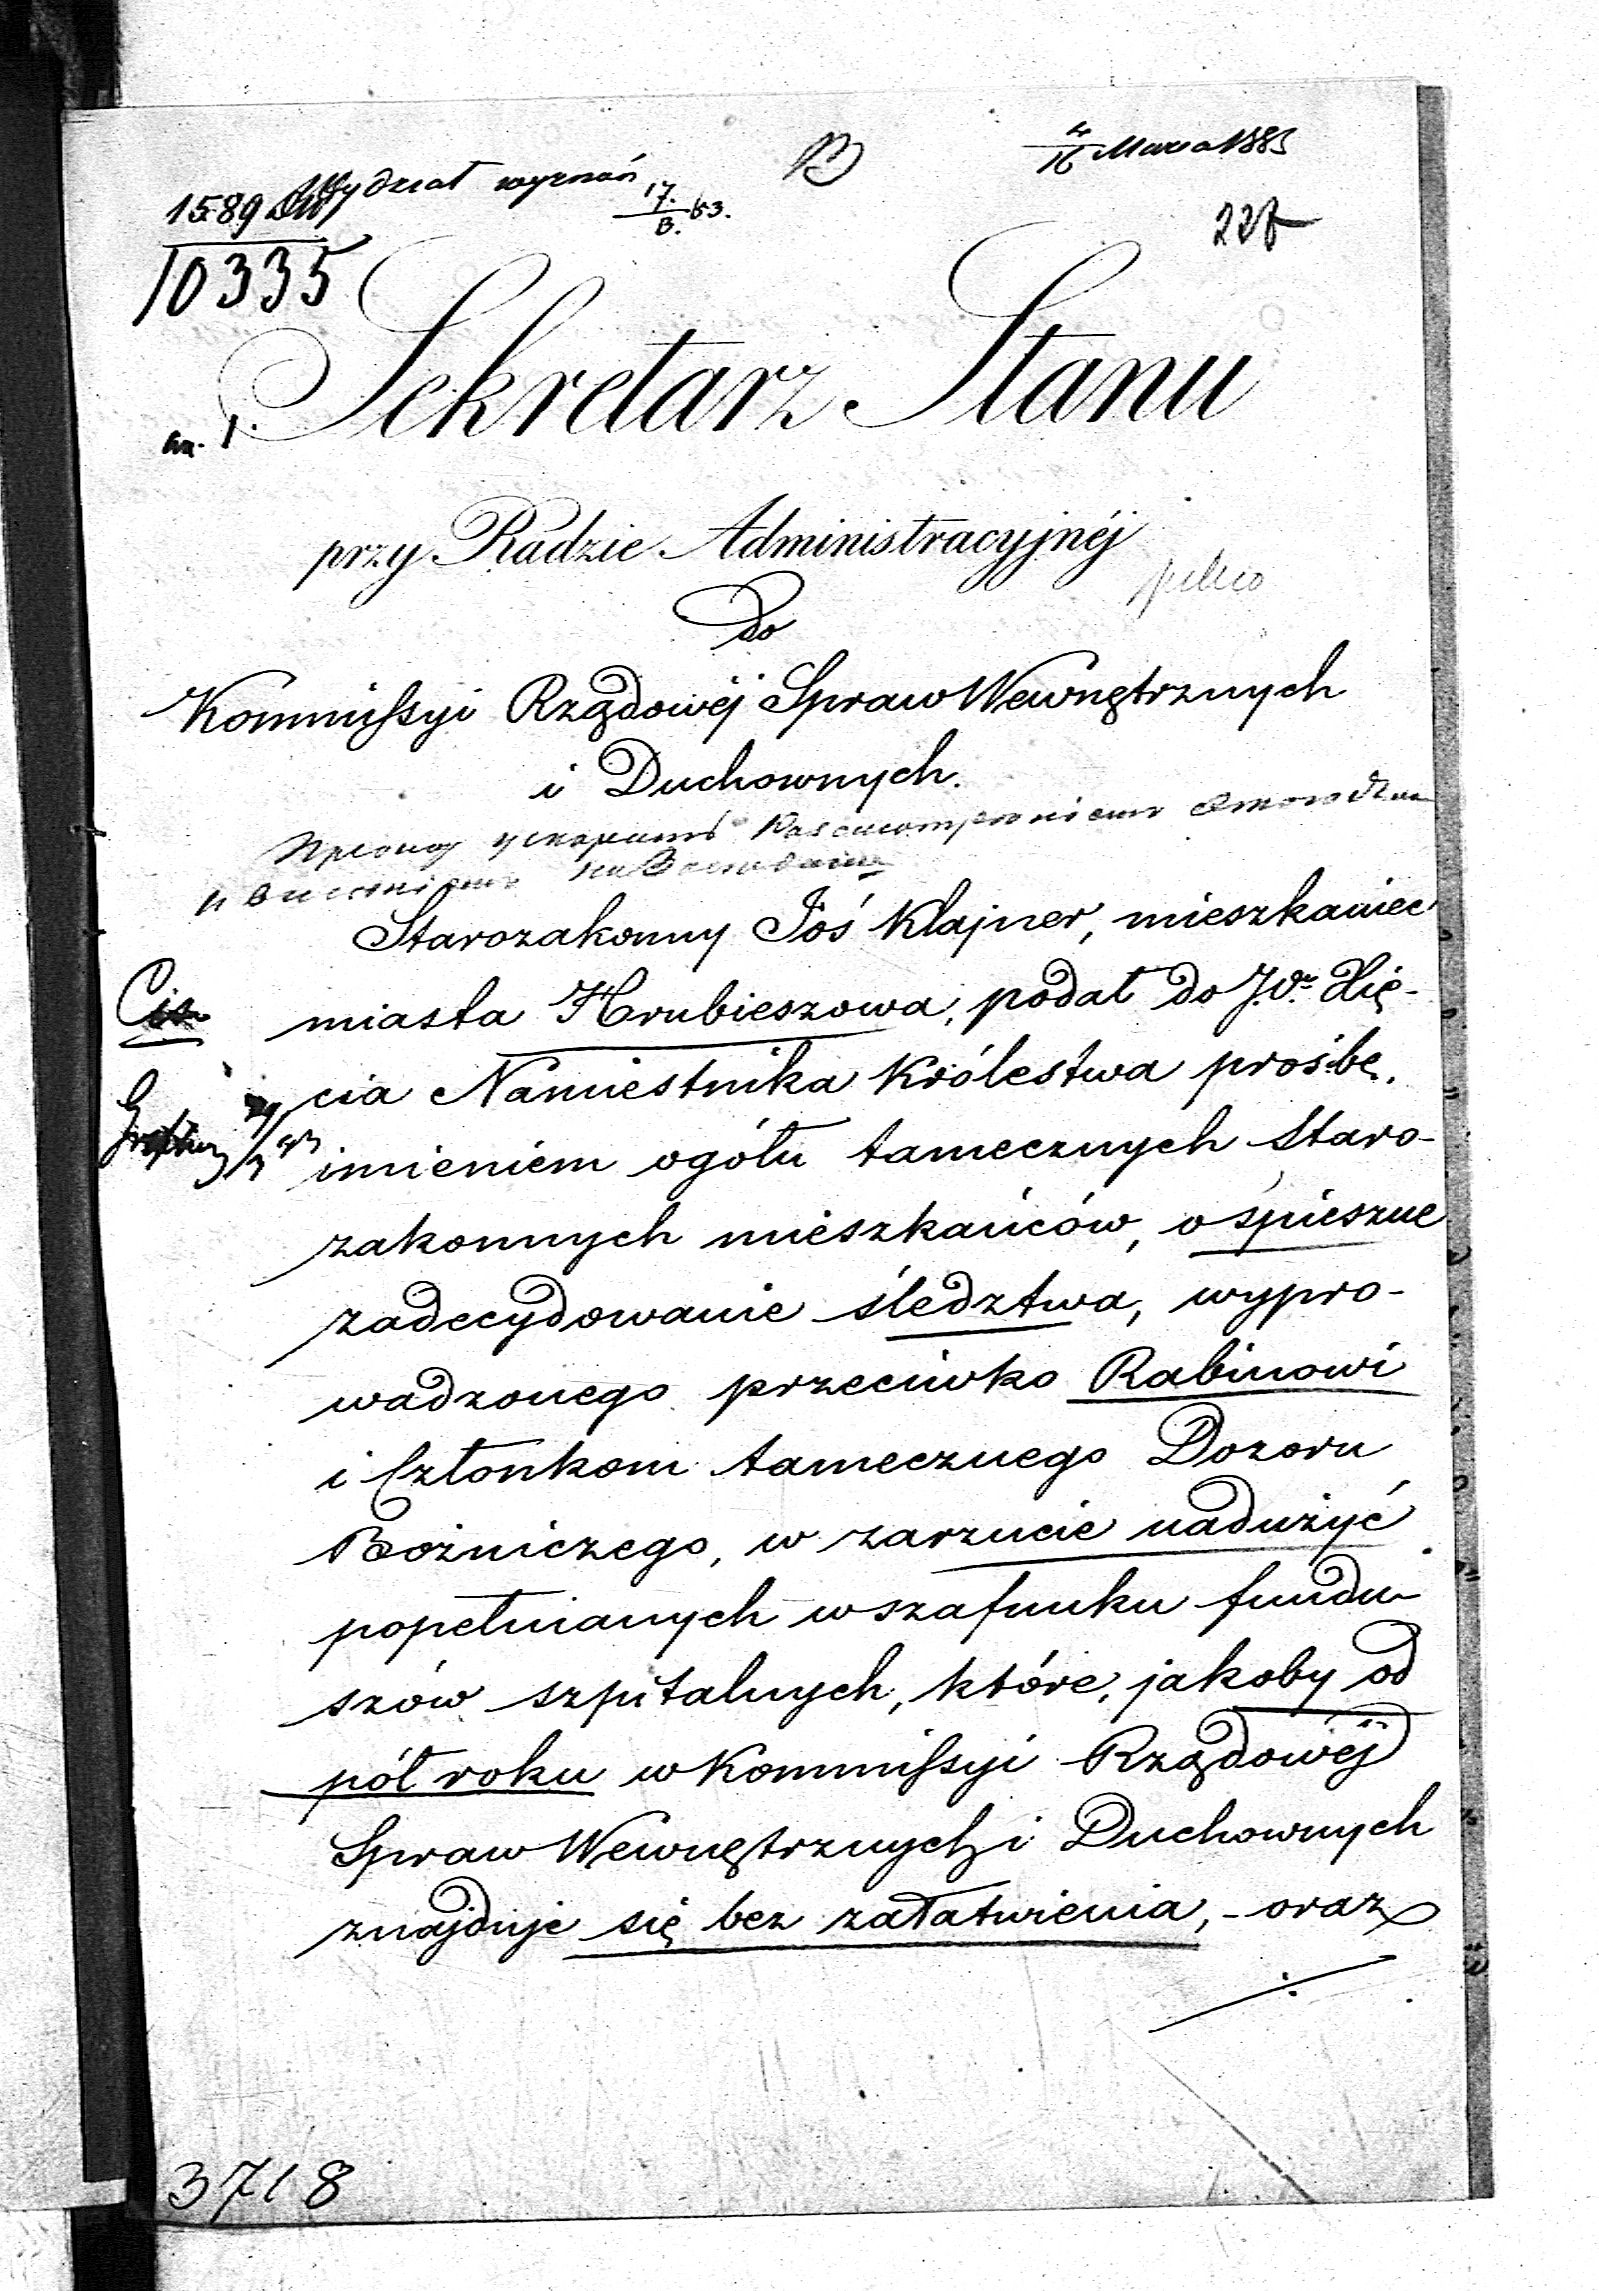 Wydział wyznań
4/16 Marca 1853
1589
17./3. 53.
228
10335
Sekretarz Stanu
przy Radzie Administracyjnéj
do
Kommissyi Rządowéj Spraw Wewnętrznych
i Duchownych.
Starozakonny Joś Klajner, mieszkaniec
miasta Hrubieszowa, podał do J.O. Xię-
cia Namiestnika Królestwa prośbę,
imieniem ogółu tamecznych Staro-
zakonnych mieszkańców, o śpieszne
zadecydowanie śledztwa, wypro-
wadzonego przeciwko Rabinowi
i Członkom tamecznego Dozoru
Bożniczego, w zarzucie nadużyć
popełnianych w szafunku fundu-
szów szpitalnych, które, jakoby od
pół roku w Kommissyi Rządowéj
Spraw Wewnętrznych i Duchownych
znajduje się bez załatwienia, - oraz
3718